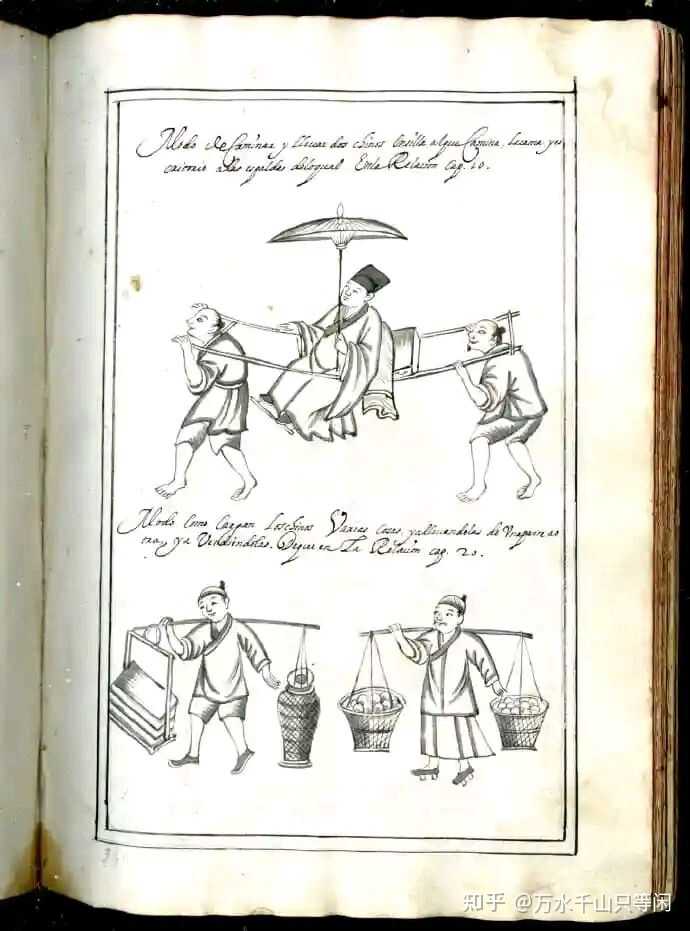 Modo de Caminar y llevar dos chinos Ensilla alque Camina. Lacama y es
caitorio a las espaldas delogual Enla Relacion cap. 20.
Modo Como Cargan Loschinos Varias Cosas, yallevandolas de Unaparte ao
tra, ya Vendiendolas. Deque en La Relacion cap. 20.
知乎 @万水千山只等闲